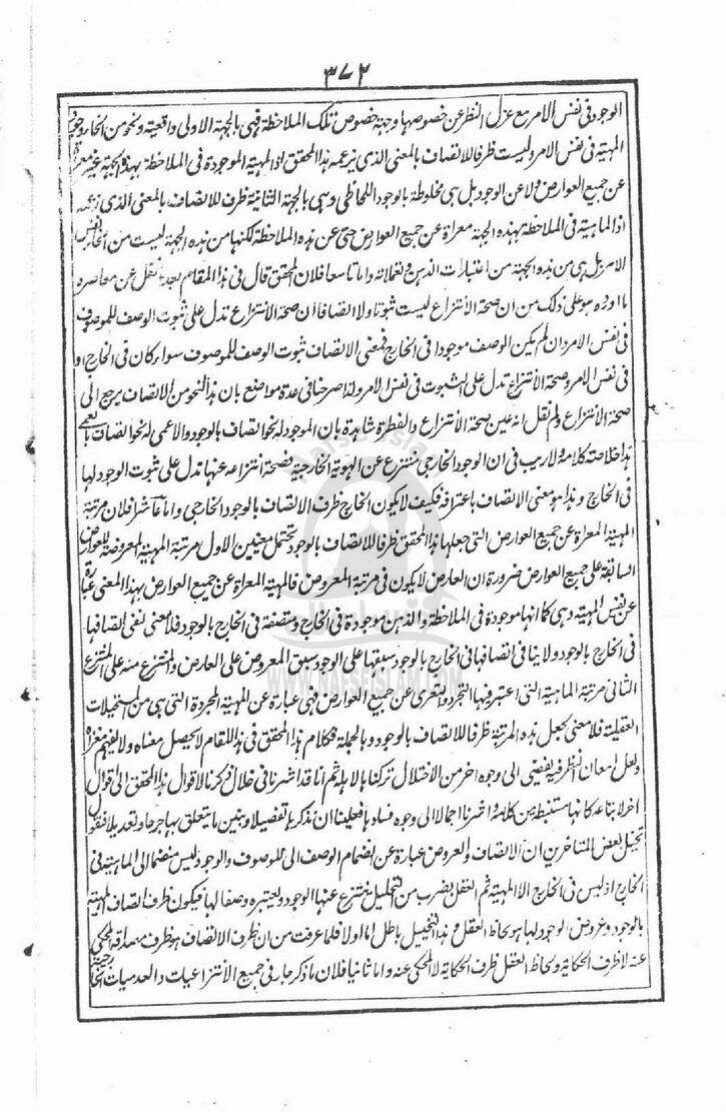 ٣٧٢
الوجود فى نفس الامر مع عزل النظر عن خصوصها وجهة خصوص تلك الملاحظة فهى بالجهة الاولى واقعية ونحو من انحاء وجود
المهية فى نفس الامر وليست ظرفا للاتصاف بالمعنى الذى يزعمه هذا المحقق اذ المهية الموجودة فى الملاحظة بهذه الجهة غير معراة
عن جميع العوارض ولا عن الوجود بل هى مخلوطة بالوجود اللحاظى وهى بالجهة الثانية ظرف للاتصاف بالمعنى الذى زعمه
اذ الماهية فى الملاحظة بهذه الجهة معراة عن جميع العوارض حتى عن هذه الملاحظة لكنها من هذه الجهة ليست من انحاء نفس
الامر بل هى من هذه الجهة من اعتبارات الذهن وتعملاته واما تاسعا فلان المحقق قال فى هذا المقام بعد نقل عن معاصره
ما اورده هو على ذلك من ان صحة الانتزاع ليست ثبوتا ولا اتصافا ان صحة الانتزاع تدل على ثبوت الوصف للموصوف
فى نفس الامر وان لم يكن الوصف موجودا فى الخارج فمعنى الاتصاف ثبوت الوصف للموصوف سواء كان فى الخارج او
فى نفس الامر وصحة الانتزاع تدل على الثبوت فى نفس الامر ولذا صرحنا فى عدة مواضع بان هذا النحو من الاتصاف يرجع الى
صحة الانتزاع ولم نقل انه عين صحة الانتزاع والفطرة شاهدة بان الموجود له نحو اتصاف بالوجود والاعمى له نحو اتصاف بالعمى
هذا خلاصة كلامه ولا ريب فى ان الوجود الخارجى منتزع عن الهوية الخارجية فصحة انتزاعه عنها تدل على ثبوت الوجود لها
فى الخارج وهذا هو معنى الاتصاف باعترافه فكيف لا يكون الخارج ظرف الاتصاف بالوجود الخارجى واما عاشرا فلان مرتبة
المهية المعراة عن جميع العوارض التى جعلها هذا المحقق ظرفا للاتصاف بالوجود تحتمل معنيين الاول مرتبة المهية المعروضة للعوارض
السابقة على جميع العوارض ضرورة ان العارض لا يكون فى مرتبة المعروض فالمهية المعراة عن جميع العوارض بهذا المعنى عبارة
عن نفس المهية وهى كما انها موجودة فى الملاحظة والذهن موجودة فى الخارج ومتصفة فى الخارج بالوجود فلا معنى لنفى اتصافها
فى الخارج بالوجود ولا ينافى اتصافها فى الخارج بالوجود سبقها على الوجود سبق المعروض على العارض والمنتزع منه على المنتزع
الثانى مرتبة الماهية التى اعتبر فيها التجرد والتعرى عن جميع العوارض فهى عبارة عن المهية المجردة التى هى من المستحيلات
العقلية فلا معنى لجعل هذه المرتبة ظرفا للاتصاف بالوجود وبالجملة فكلام هذا المحقق فى هذا المقام لا يحصل معناه ولا يفهم مغزاه
ولعل امعان النظر فيه يفضى الى وجوه اخر من الاختلال تركناها لا بلد ثم انا قد اشرنا فى خلال ذكرنا لاقوال هذا المحقق الى اقوال
اخر لاتباعه كانها مستنبطة من كلامه واشرنا اجمالا الى وجوه فسادها فعلينا ان نذكرها تفصيلا ونبين ما يتعلق بها جرحا وتعديلا فنقول
تخيل بعض المتاخرين ان الاتصاف والعروض عبارة عن انضمام الوصف الى الموصوف والوجود ليس منضما الى الماهية فى
الخارج اذ ليس فى الخارج الا المهية ثم العقل بضرب من التحليل ينتزع عنها الوجود ويعتبره وصفا لها فيكون ظرف اتصاف المهية
بالوجود وعروض الوجود لها هو لحاظ العقل وهذا التخييل باطل اما اولا فلما عرفت من ان ظرف الاتصاف هو ظرف مصداقه المحكى
عنه لا ظرف الحكاية ولحاظ العقل ظرف الحكاية لا المحكى عنه واما ثانيا فلان ما ذكر جار فى جميع الانتزاعيات والعدميات الخارجية
WWW.NAFSEISLAM.COM